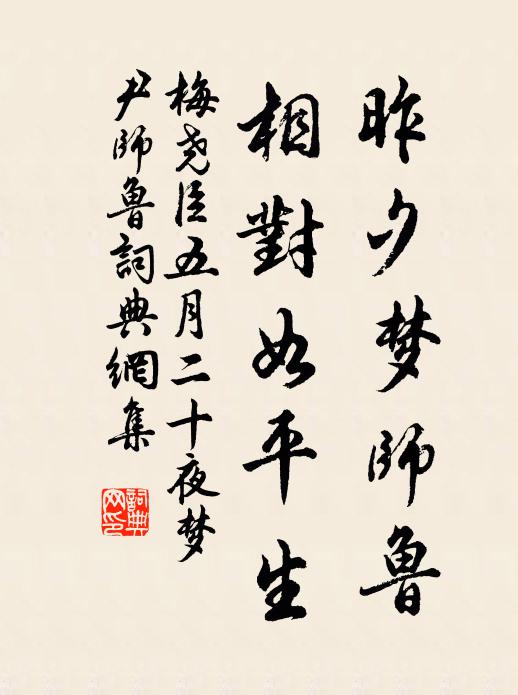 昨夕梦師魯
相對如平生
梅尧臣五月二十夜梦
尹師魯詞典網集
詞典网印